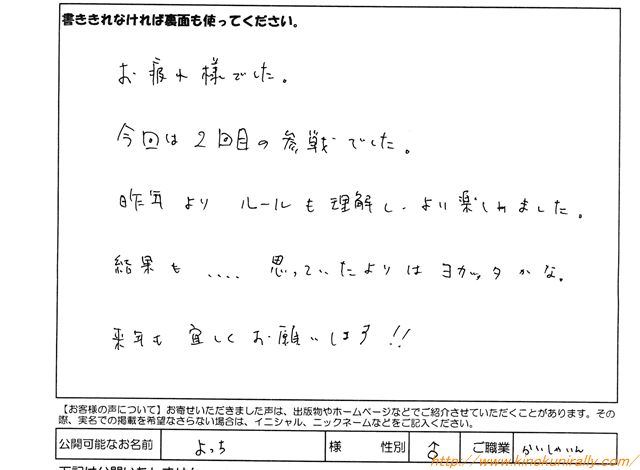 書ききれなければ裏面も使ってください。
お疲れ様でした。
今回は2回目の参戦でした。
昨年より ルールも理解し、より楽しめました。
結果も .... 思っていたよりは ヨカッタかな。
来年も 宜しくお願いします!!
【お客様の声について】お寄せいただきました声は、出版物やホームページなどでご紹介させていただくことがあります。その
際、実名での掲載を希望なさらない場合は、イニシャル、ニックネームなどをご記入ください。
公開可能なお名前 よっち 様 性別 ♂ ご職業 かいしゃいん
http://www.kinokunirally.com/